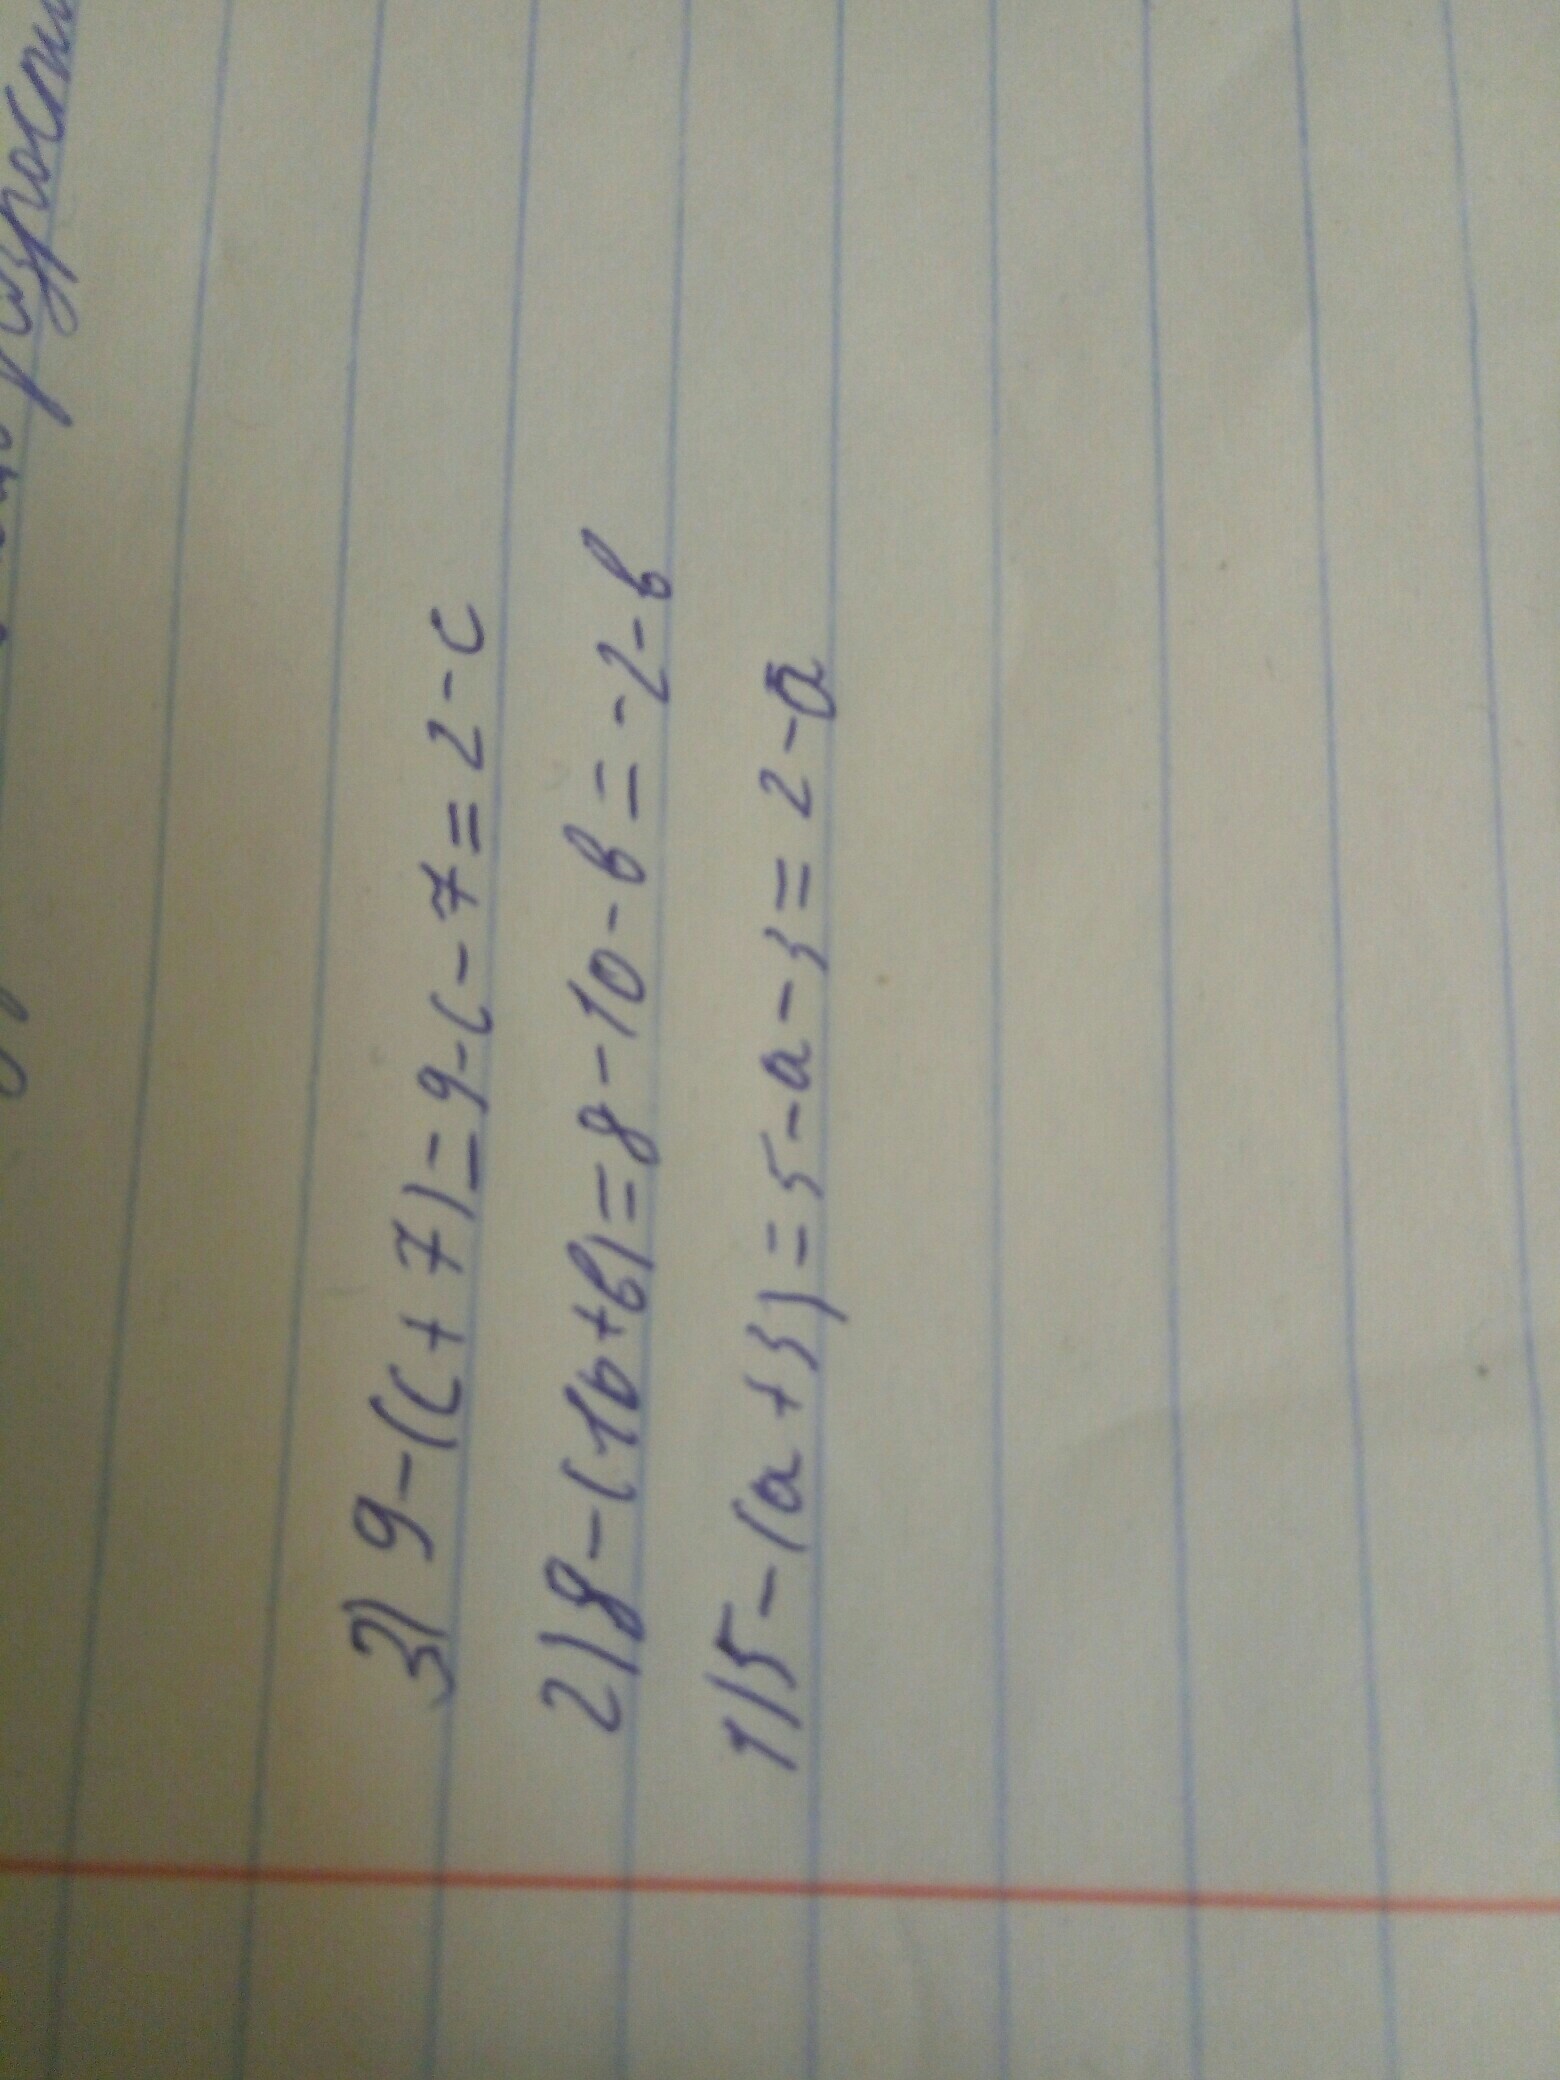 3) 9-(c+7)=9-c-7=2-c
2) 8-(10+b)=8-10-b=-2-b
1) 5-(a+3)=5-a-3=2-a